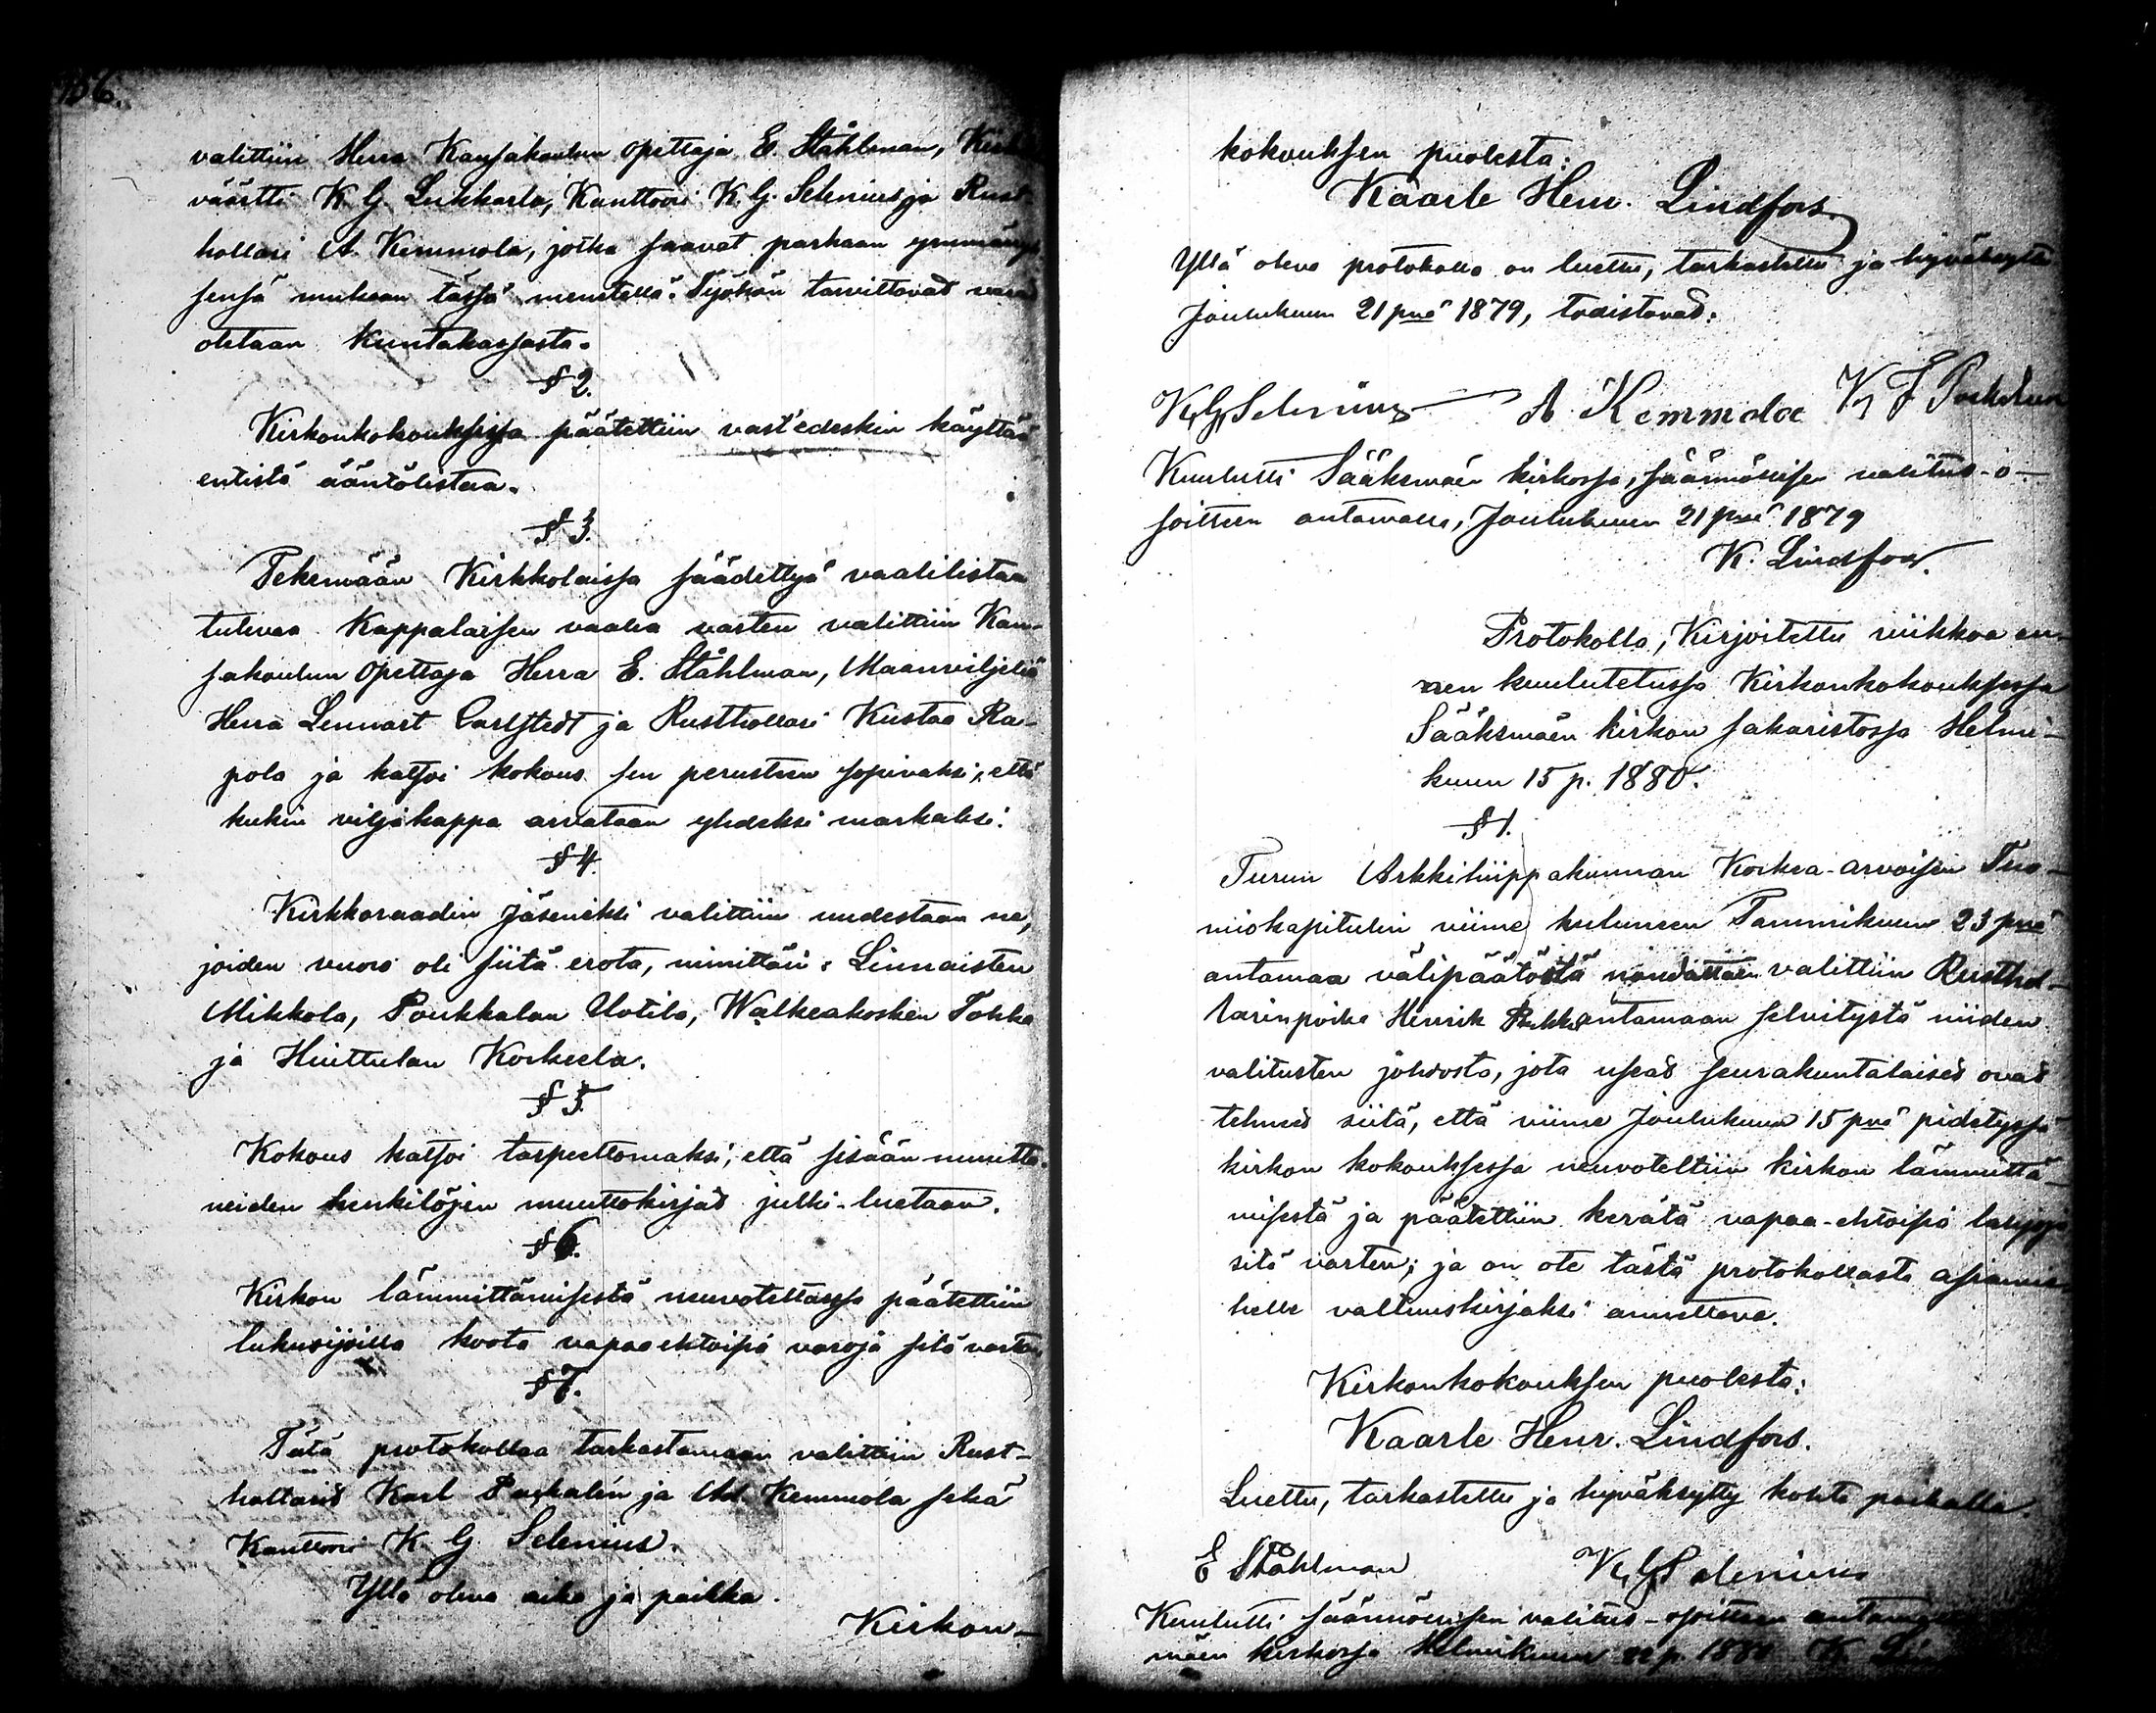 156.
valittiin Herra Kansakoulun opettaja E. Ståhlman, Kirkko-
väärtti K. G. Lukkarla, Kanttoori K. G. Selenius ja Rust-
hollari A. Kemmola, jotka saavat parhaan ymmärryk-
sensä mukaan tässä menetellä. Työhön tarvittavat varat
otetaan Kuntakassasta.
§ 2.
Kirkonkokouksissa päätettiin vast'edeskin käyttää
entistä ääntölistaa.
§ 3.
Tekemään Kirkkolaissa säädettyä vaalilistaa
tulevaa Kappalaisen vaalia varten valittiin Kan-
sakoulun Opettaja Herra E. Ståhlman, Maanviljeliä
Herra Lennart Carlstedt ja Rusthollari Kustaa Ra-
pola ja katsoi kokous sen perusteen sopivaksi, että
kukin viljakappa arvataan yhdeksi markaksi.
§ 4.
Kirkkoraadin Jäseniksi valittiin uudestaan ne,
joiden vuoro oli siitä erota, nimittäin: Linnaisten
Mikkola, Poukkalan Uotila, Walkeakosken Tokka
ja Huittulan Korkeela.
§ 5.
Kokous katsoi tarpeettomaksi, että sisään muutta-
neiden henkilöjen muuttokirjad julki-luetaan.
§ 6.
Kirkon lämmittämisestä neuvoteltaessa päätettiin
lukusijoilla koota vapaaehtoisia varoja sitä varten
§ 7.
Tätä protokollaa tarkastamaan valittiin Rust-
hollarid Karl Paskalin ja Ad. Kemmola sekä
Kanttoori K. G. Selenius.
Yllä oleva aika ja paikka.
Kirkon-
kokouksen puolesta:
Kaarle Henr. Lindfors
Yllä oleva protokolla on luettu, tarkastettu ja hyväksytty
Joulukuun 21 pnä 1879, todistavad:
K. G. Selenius A Kemmola K J
Kuulutti Sääksmäen kirkossa, säännöllisen valitus-o-
soitteen antamalla, Joulukuun 21 pnä 1879
K. Lindfors.
Protokolla, Kirjoitettu viikkoa en-
nen kuulutetussa Kirkonkokouksessa
Sääksmäen kirkon sakaristossa Helmi-
kuun 15 p. 1880.
§ 1.
Turun Arkkihiippakunnan Korkea-arvoisen Tuo-
miokapitulin viime kuluneen Tammikuun 23 pnä
antamaa välipäätöstä noudattaen valittiin Rusthol-
larinpoika Henrik antamaan selvitystä niiden
valitusten johdosta, jota usead seurakuntalaised ovad
tehneed siitä, että viime Joulukuun 15 pnä pidetyssä
kirkon kokouksessa neuvoteltiin kirkon lämmittä-
misestä ja päätettiin kerätä vapaa-ehtoisia lahjoja
sitä varten; ja on ote tästä protokollasta asiamie-
helle valtuuskirjaksi annettava.
Kirkonkokouksen puolesta:
Kaarle Henr. Lindfors.
Luettu, tarkastettu ja hyväksytty kohta paikalla.
E Ståhlman K. G. Selenius
Kuulutti säännöllisen valitus-osoitteen
mäen kirkossa Helmikuun 22 p. 1880 K.